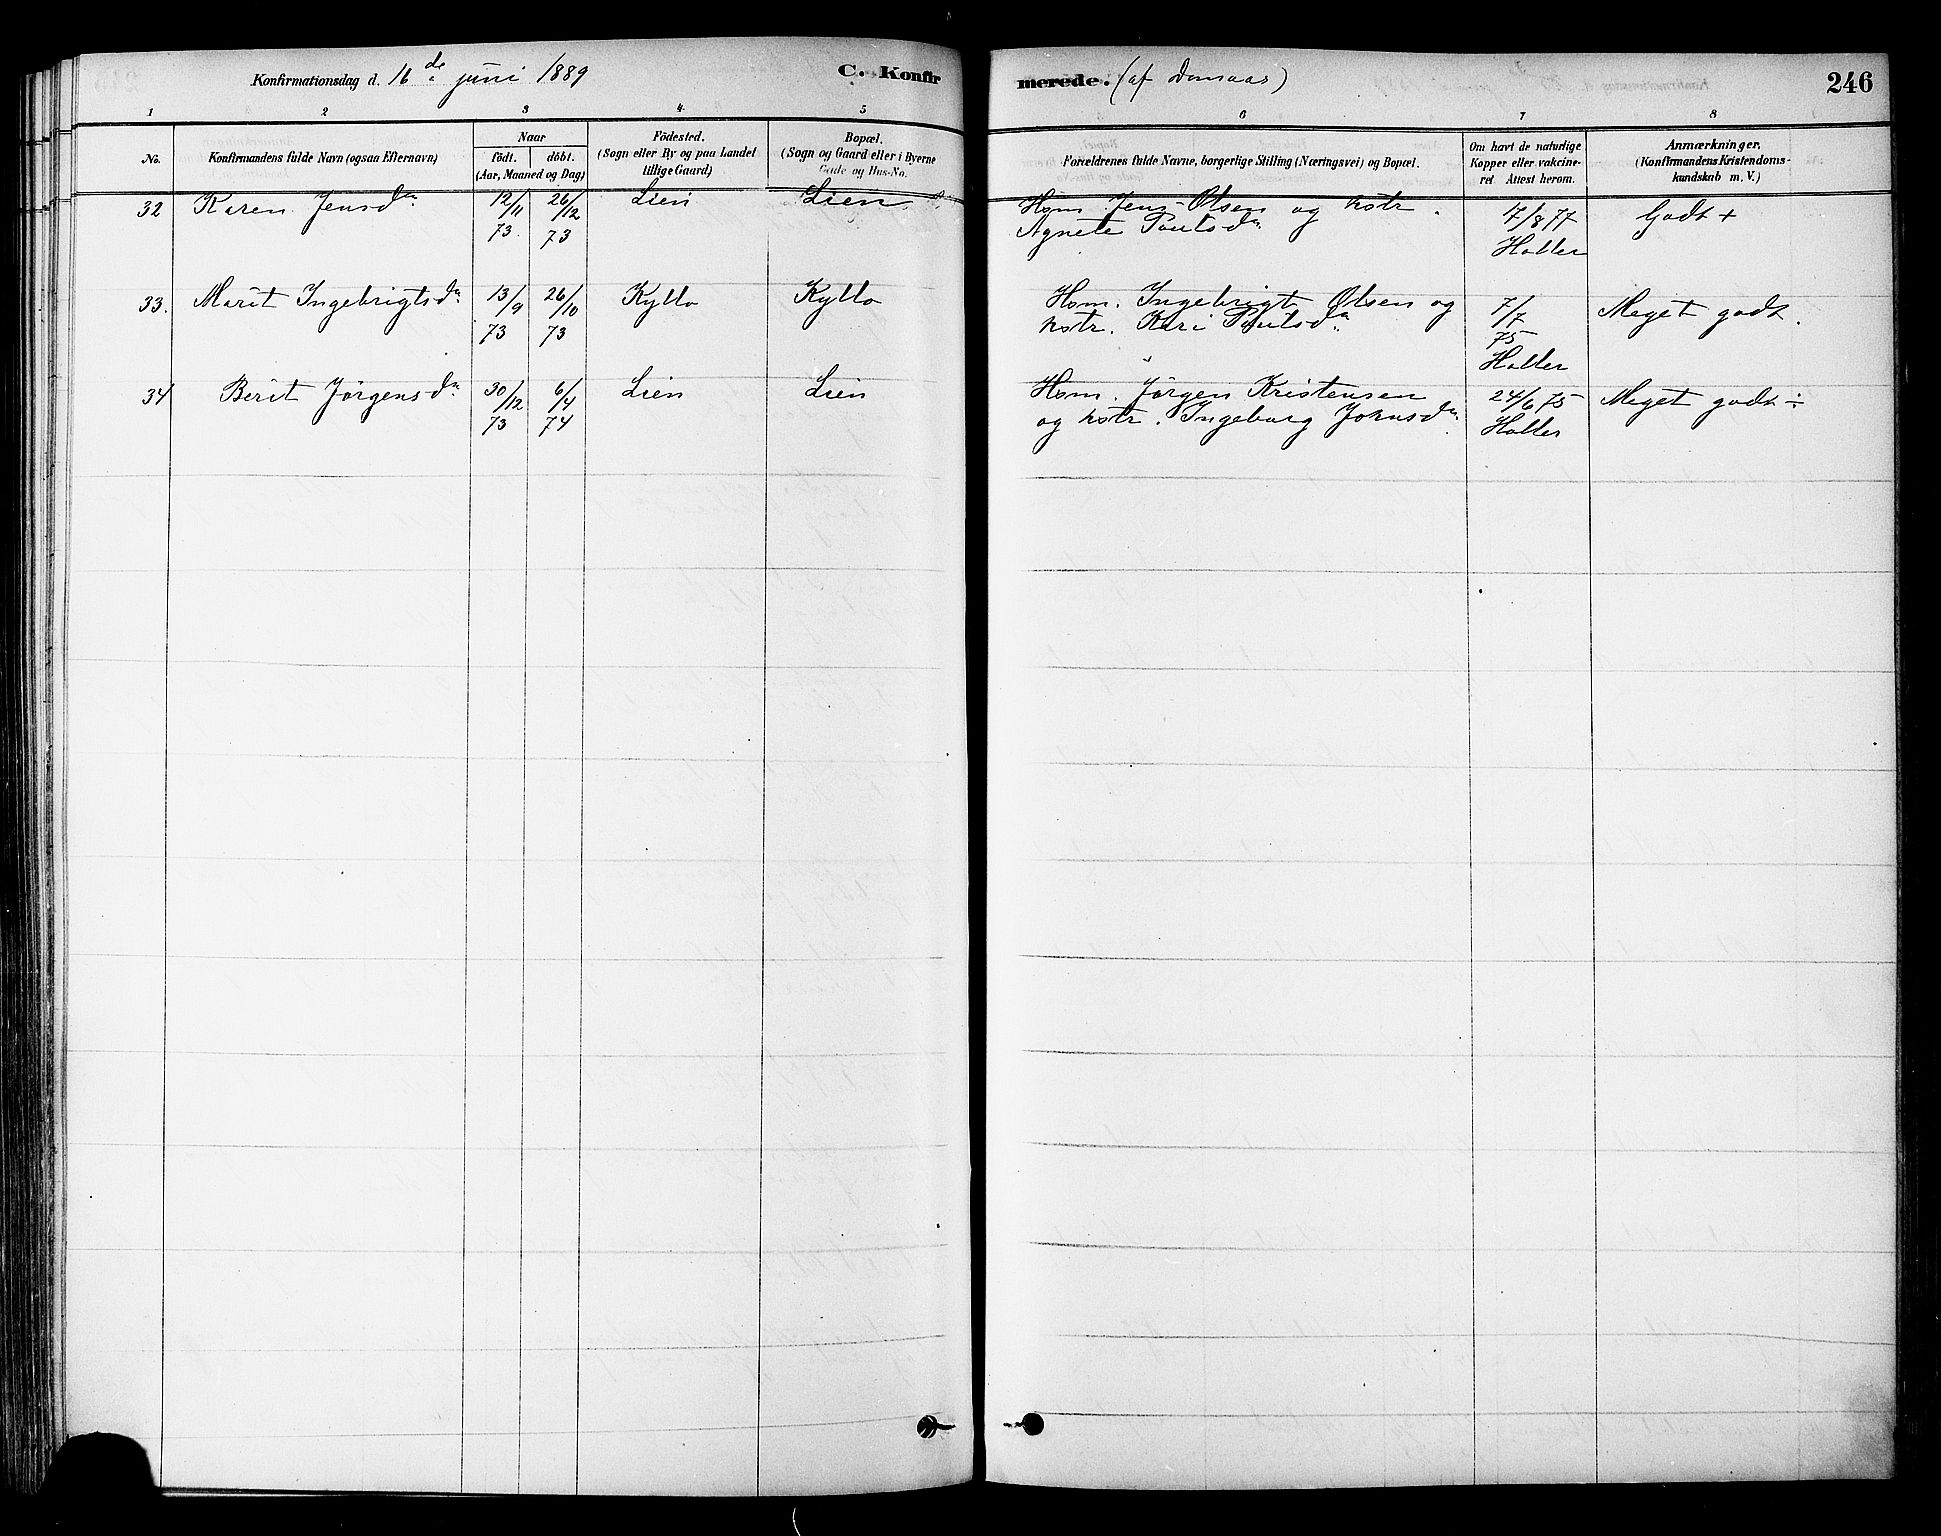 Konfirmationsdag d. 16de juni 1889
C. Konfir
1 2 3 4 5
No.
Konfirmandens fulde Navn (ogsaa Efternavn)
Naar
födt. döbt.
(Aar, Maaned og Dag)
Födested.
(Sogn eller By og paa Landet
tillige Gaard)
Bopæl.
(Sogn og Gaard eller i Byerne
Gade og Hus-No.
32 Karen Jensdr 12/11 73. 26/12 73 Lien Lien
33. Marit Ingebrigtsdr 13/9 73 26/10 73 Kyllo Kyllo
34 Berit Jørgensdr 30/12 73 6/4 74 Lien Lien
merede. (af
246
6 7 8
Forældrenes fulde Navne, borgerlige Stilling (Næringsvei) og Bopæl.
Om havt de naturlige
Kopper eller vakcine-
ret. Attest herom.
Anmærkninger.
(Konfirmandens Kristendoms-
kundskab m. V.)
Hsm. Jens Olsen og kstr.
Agnete Paulsdr
17/8 77
Holler
Godt +
Hsm. Ingebrigt Olsen og
kstr. Kari Paulsdr
7/7
75
Holler
Meget godt.
Hsm. Jørgen Kristensen
og kstr. Ingeborg Johnsdr
24/6 75
Holler
Meget godt ÷